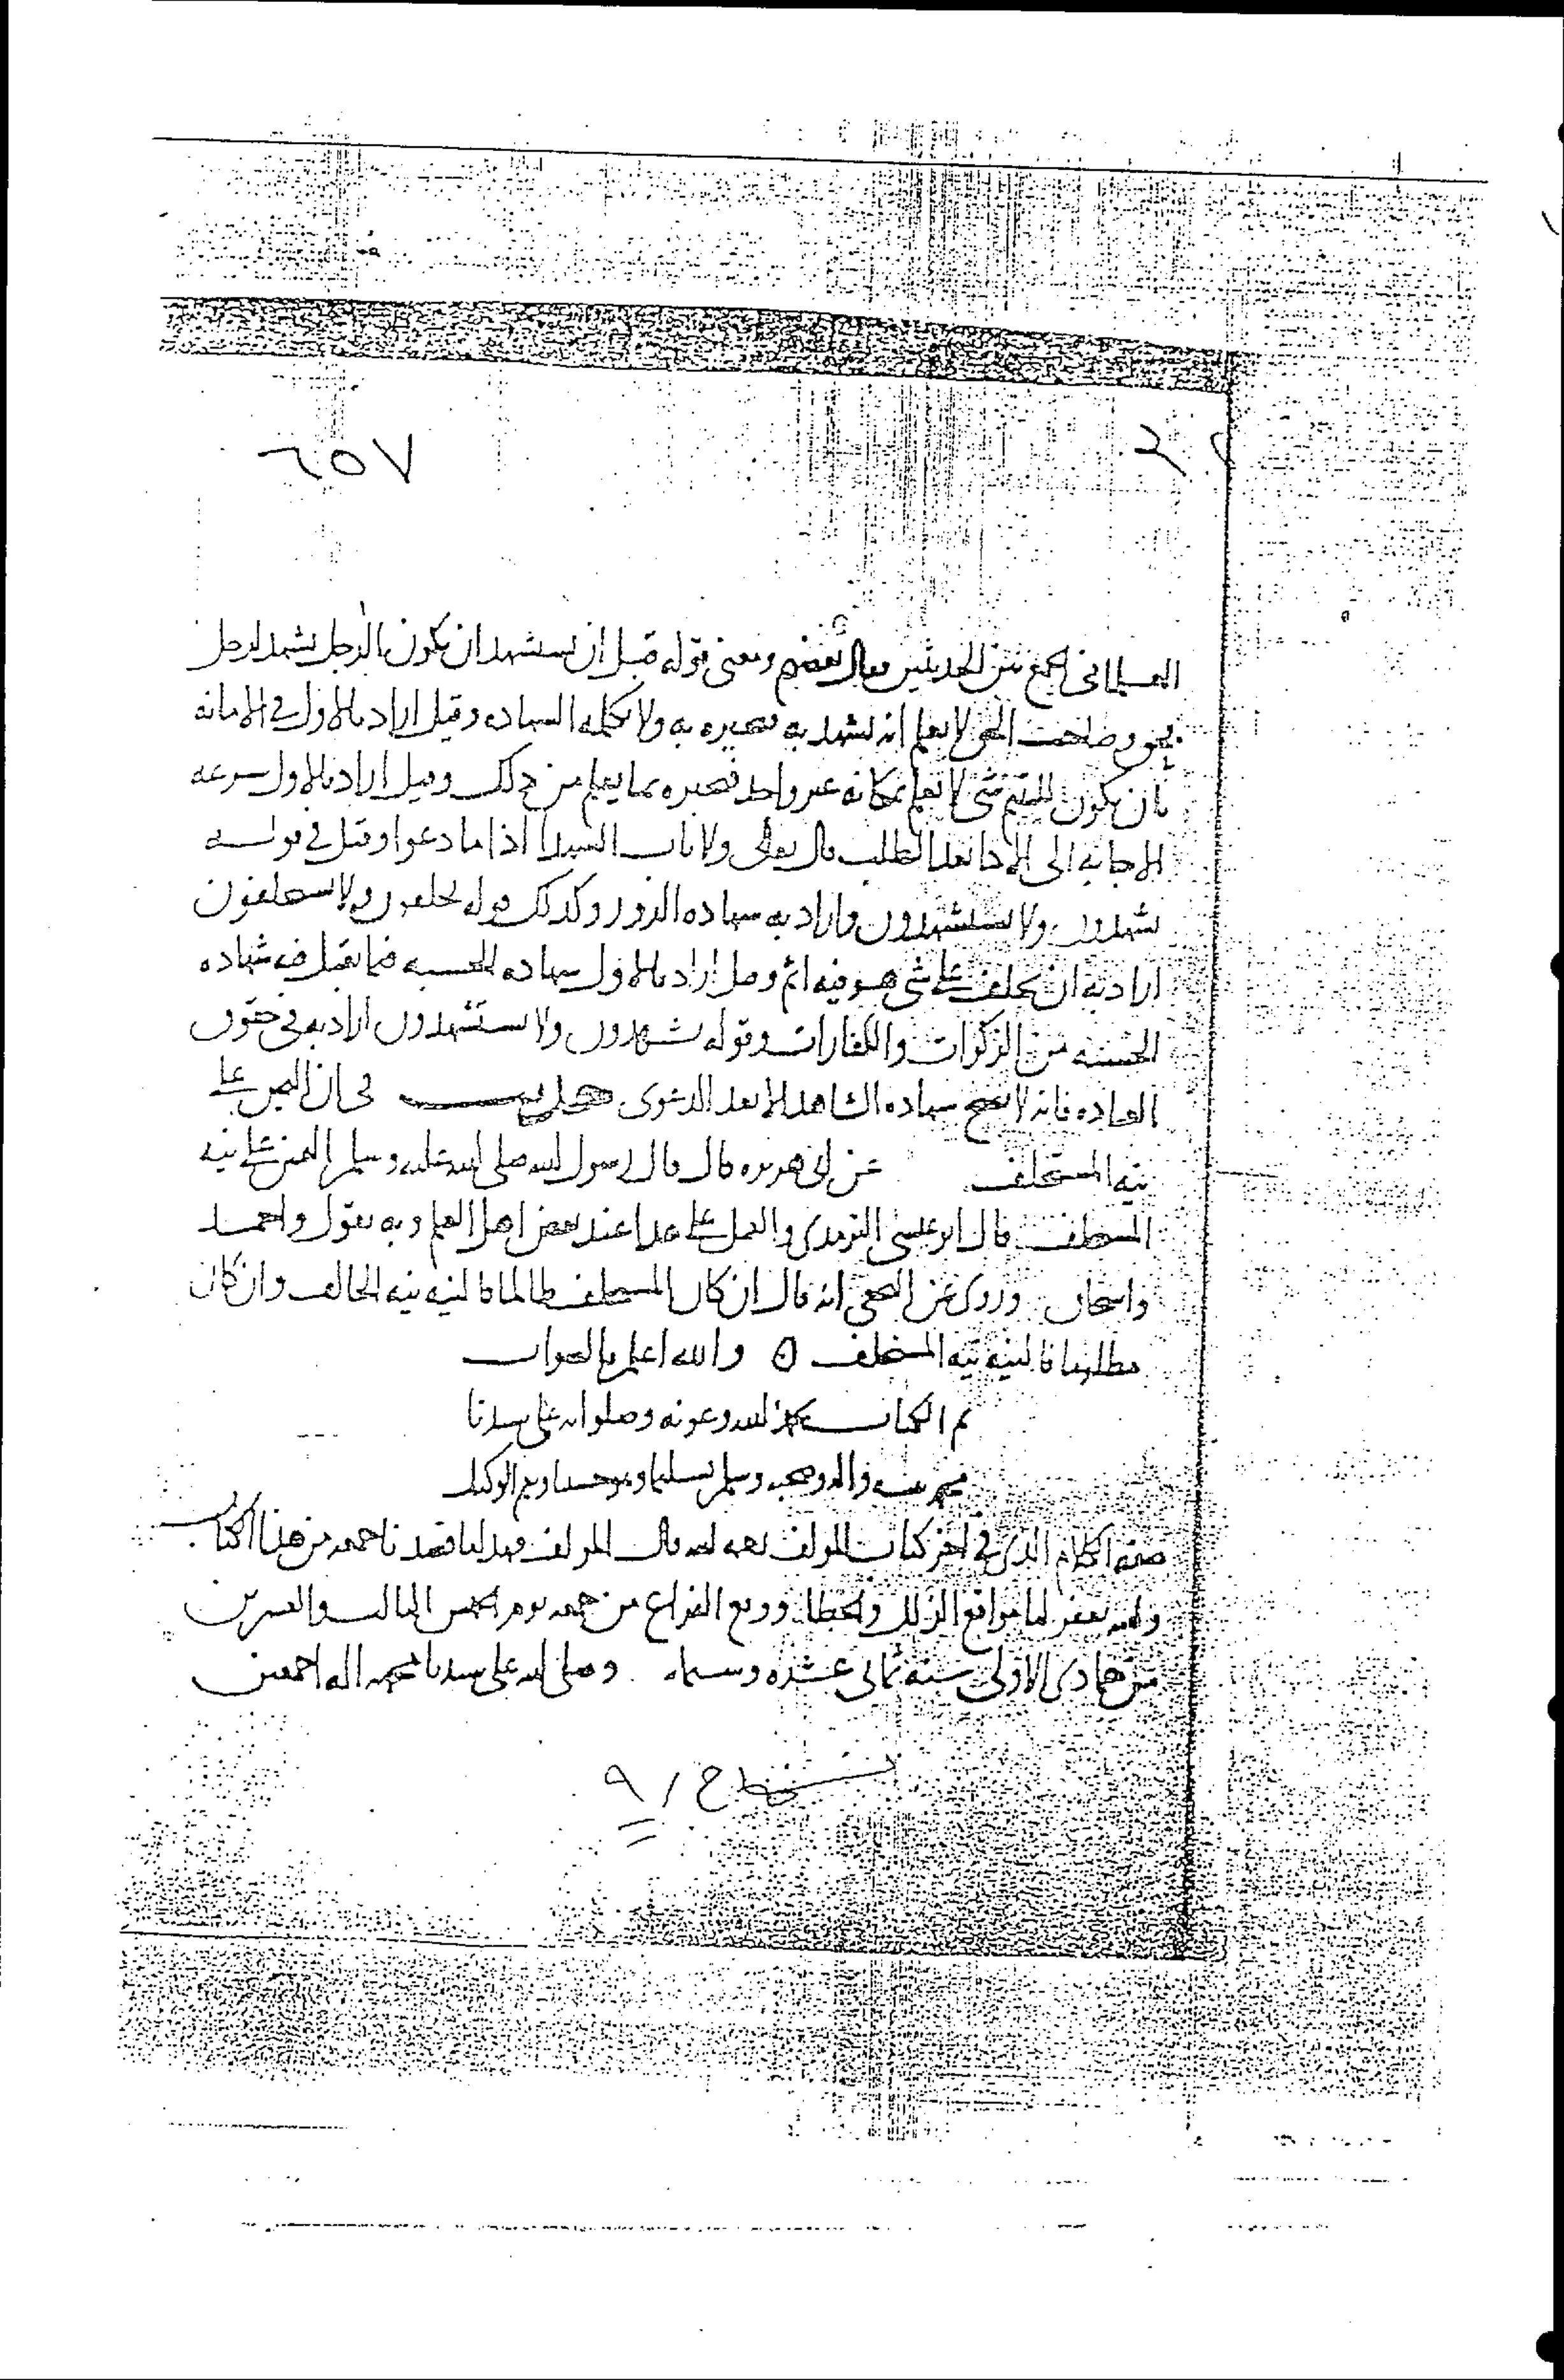 ٦٥٧
العلما في الجمع بين الحديثين فقال بعضهم ومعنى قوله قبل ان يستشهد ان يكون الرجل يشهد لرجل
بحق وصاحب الحق لا يعلم انه يشهد به فيخبره به ولا يكتمه الشهاده وقيل اراد بالاول في الامانه
بان يكون لليتيم شي لا يعلم مكانه غير واحد فيخبره بما يعلم من ذلك وقيل اراد بالاول سرعه
الاجابه الى الادا بعد الطلب قال تعالى ولا ياب الشهدا اذا ما دعوا وقيل في قوله
يشهدون ولا يستشهدون واراد به شهاده الزور وكذلك قوله يحلفون ولا يستحلفون
اراد به ان يحلف على شي هو فيه اثم وقيل اراد بالاول شهاده الحسبه فيما يقبل فيه شهاده
الحسبه من الزكوات والكفارات وقوله يشهدون ولا يستشهدون اراد به في حقوق
العاده فانه لا يصح شهاده الشاهد الا بعد الدعوى في ان اليمين على
نيه المستحلف عن ابي هريره قال قال رسول الله صلى الله عليه وسلم اليمين على نيه
المستحلف قال ابو عيسى الترمذي والعمل على هذا عند بعض اهل العلم وبه يقول واحمد
واسحاق وروى عن النخعي انه قال ان كان المستحلف ظالما فالنيه نيه الحالف وان كان
مظلوما فالنيه نيه المستحلف ۞ والله اعلم بالصواب
تم الكتاب بحمد الله وعونه وصلواته على سيدنا
محمد واله وصحبه وسلم تسليما وهو حسبنا ونعم الوكيل
صفه الكلام الذي في اخر كتاب المولف رحمه الله قال المولف فهذا ما قصدنا جمعه من هذا الكتاب
والله يغفر لنا مواقع الزلل والخطا ووقع الفراغ من جمعه يوم الخميس الثالث والعشرين
من جمادى الاولى سنه ثماني عشره وستمايه وصلى الله على سيدنا محمد واله اجمعين